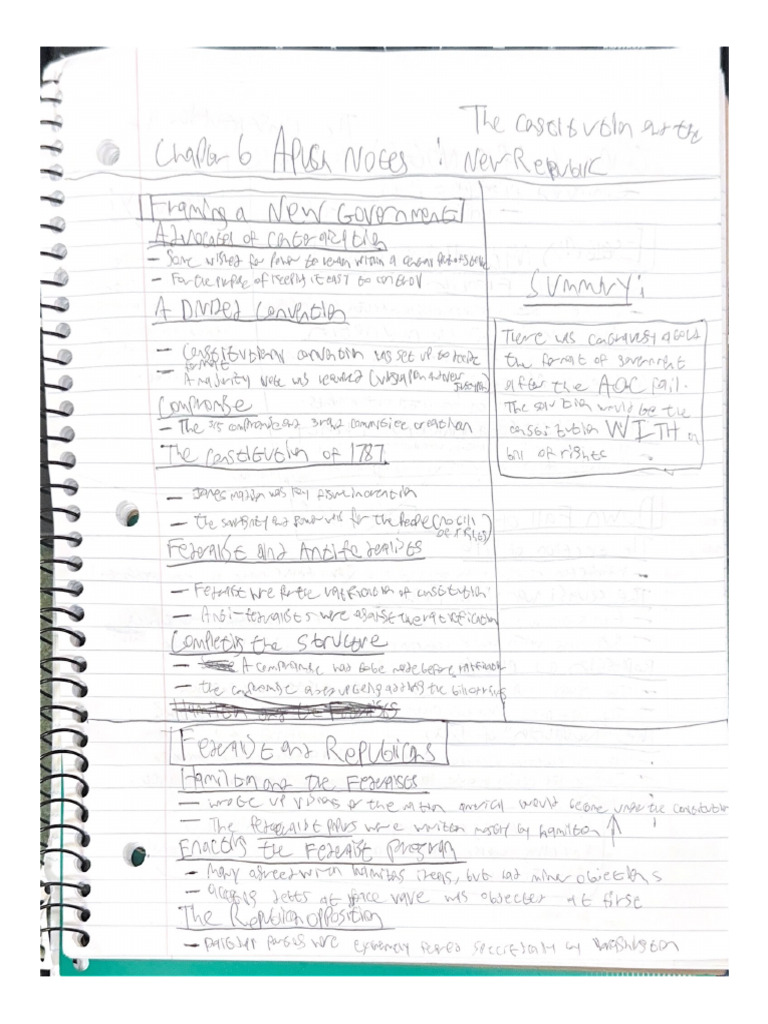 The Constitution and the
Chapter 6 APUSH Notes : New Republic
Framing a New Government
Advocates of Centralization
- Some wished for power to remain within a central
- For the purpose of keeping it easy to control
A Divided Convention
- Constitutional convention was set up to
- A majority vote was required
Compromise
- The 3/5 compromise and grand committee creation
The Constitution of 1787
- James Madison was key
- the and power was for the people (no
Federalist and Antifederalists
- Federalist were for the ratification of constitution
- Anti-federalists were against the ratification
Completing the Structure
- A compromise had to be made before
- the compromise adding the bill of rights
Hamilton and the Federalists
Summary:
There was controversy about
the format of government
after the AOC fail.
The solution would be the
constitution WITH
bill of rights
Federalist and Republicans
Hamilton and the Federalists
- wrote up visions of the nation would become under the constitution
- The federalist papers were written mostly by hamilton ↑
Enacting the Federalist program
- Many agreed with hamiltons ideas, but had minor objections
- debts at face value was objected at first
The Republican opposition
- parties were extremely feared specifically by Washington